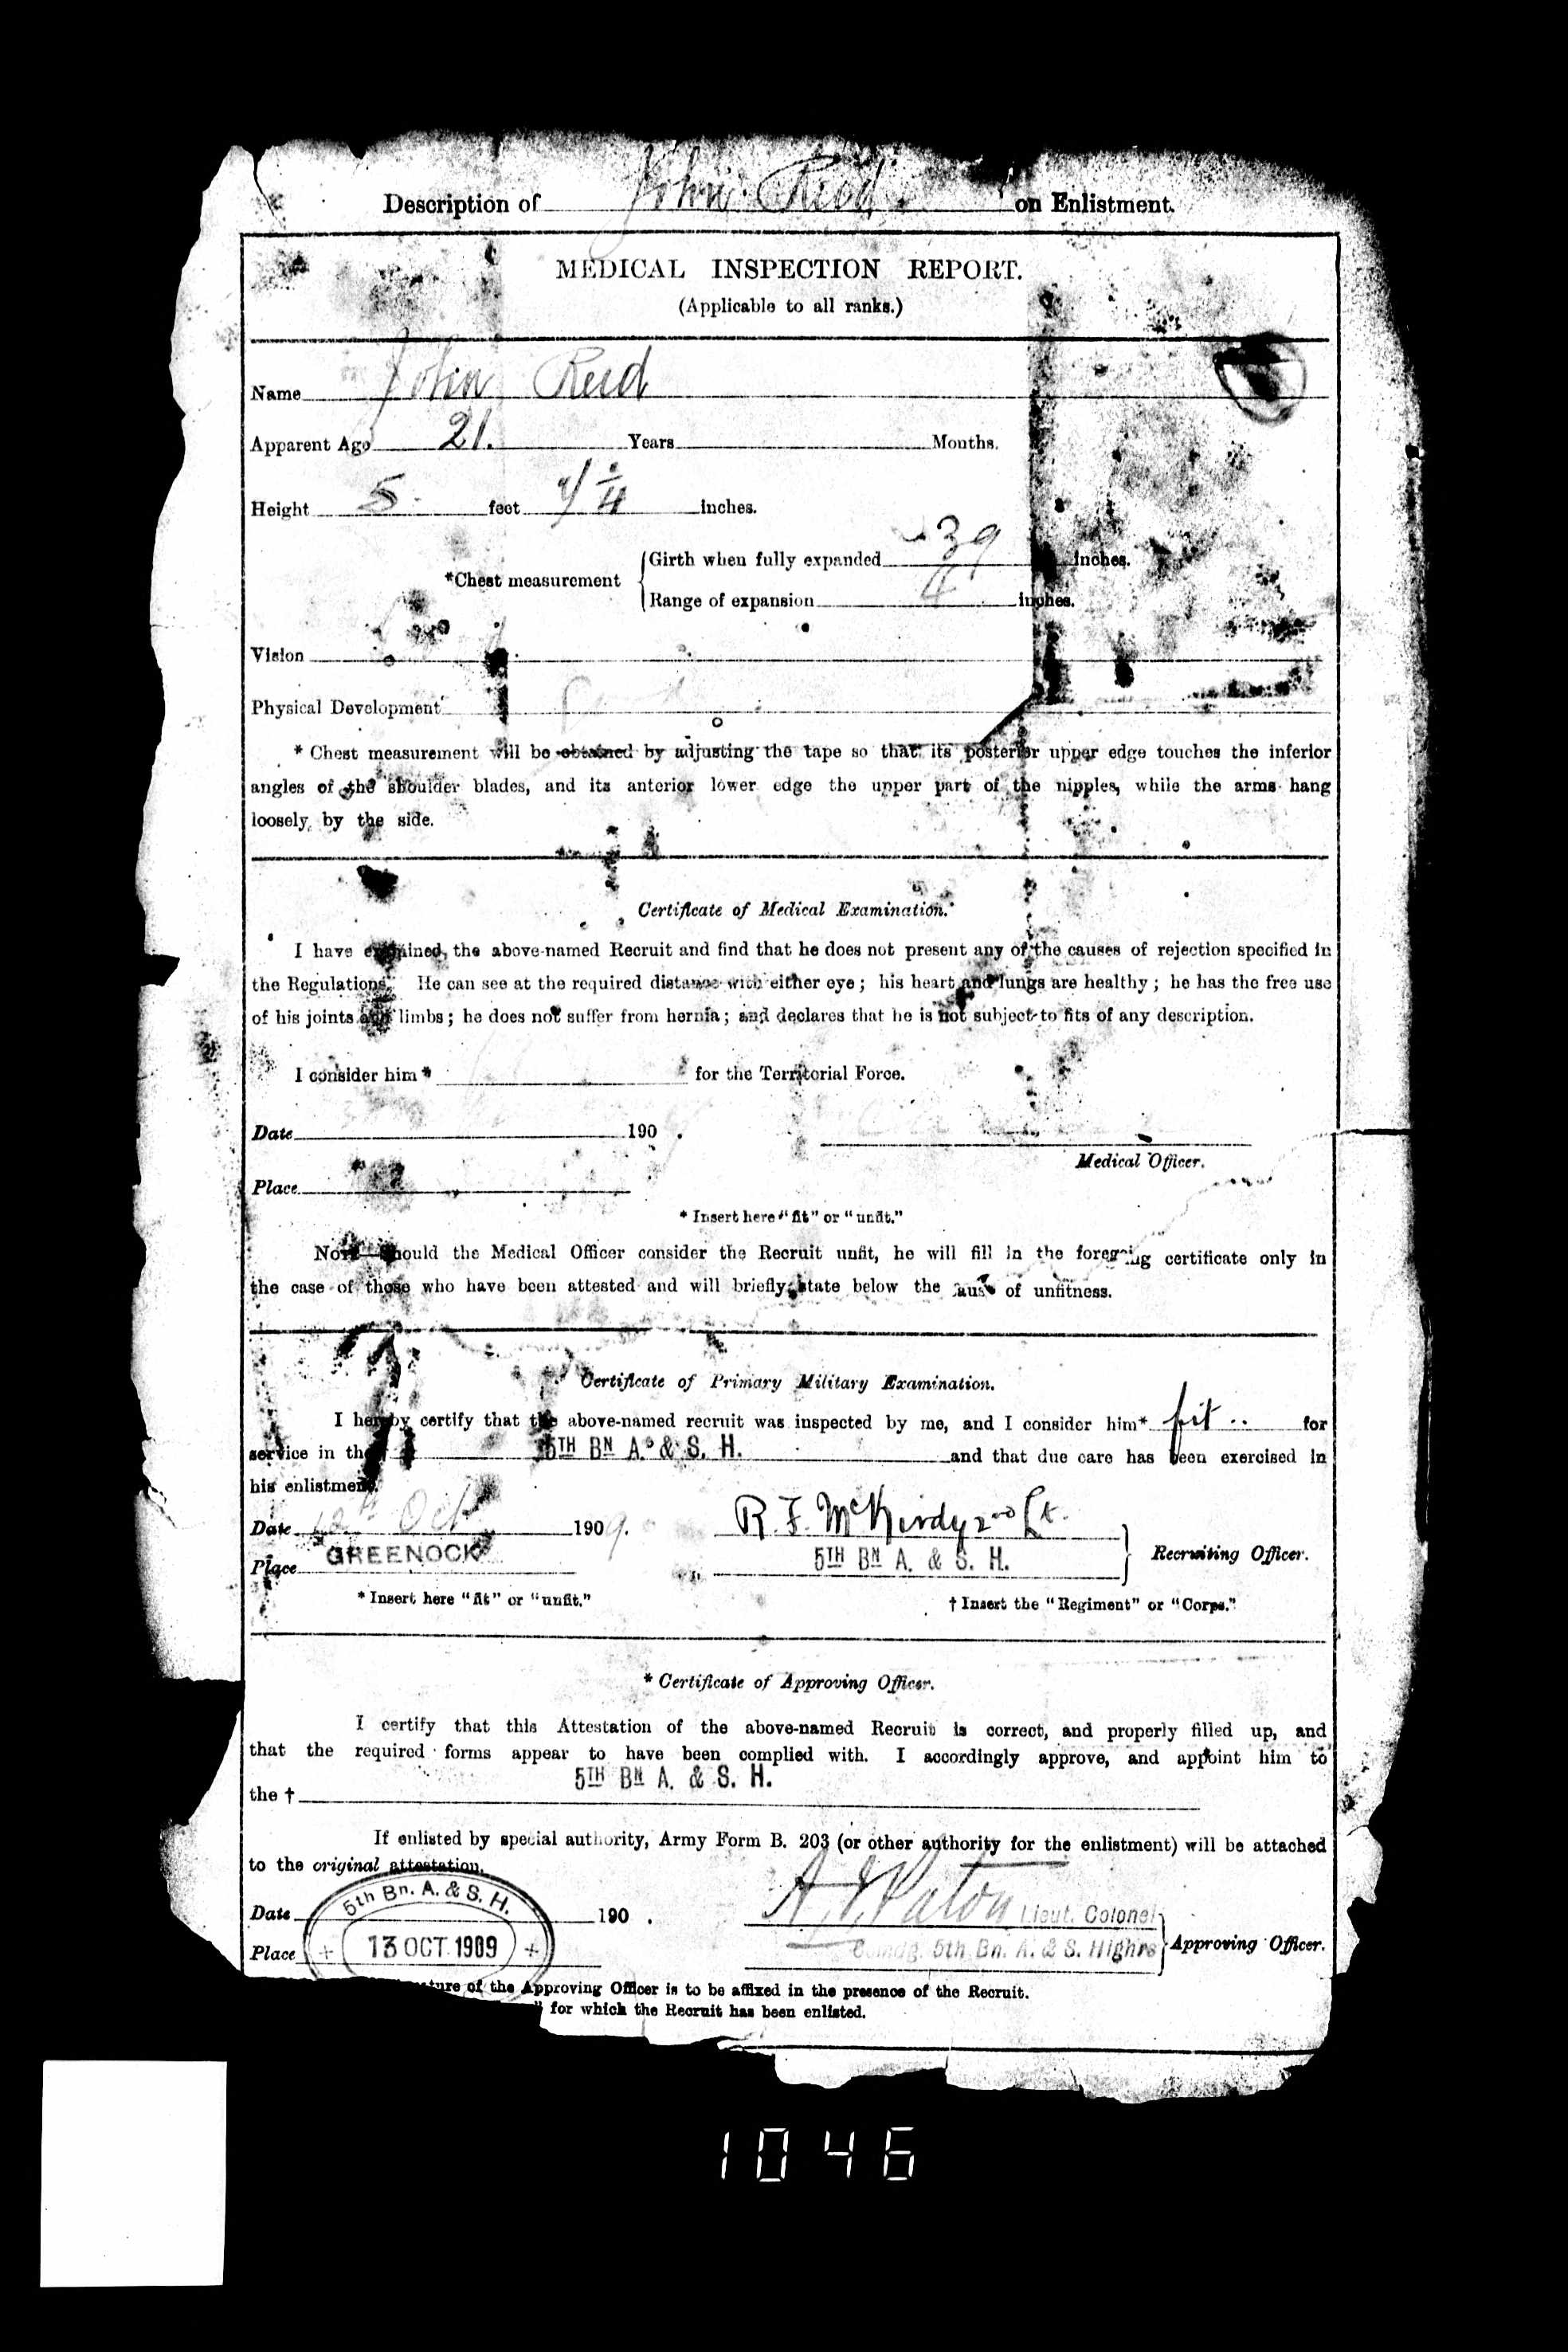 Description of John Reid on Enlistment.
MEDICAL INSPECTION REPORT.
(Applicable to all ranks.)
Name John Reid
Apparent Age 21. Years Months.
Height 5 feet 7 1/4 inches.
Girth when fully expanded 39 inches.
*Chest measurement
Range of expansion 4 inches.
Vision
Physical Development
* Chest measurement will be obtained by adjusting the tape so that its posterior upper edge touches the inferior
angles of the shoulder blades, and its anterior lower edge the upper part of the nipples, while the arms hang
loosely by the side.
Certificate of Medical Examination.
I have examined the above-named Recruit and find that he does not present any of the causes of rejection specified in
the Regulations. He can see at the required distance with either eye; his heart and lungs are healthy; he has the free use
of his joints and limbs; he does not suffer from hernia; and declares that he is not subject to fits of any description.
I consider him* for the Territorial Force.
Date 190 .
Medical Officer.
Place
* Insert here "fit" or "unfit."
Note—Should the Medical Officer consider the Recruit unfit, he will fill in the foregoing certificate only in
the case of those who have been attested and will briefly state below the cause of unfitness.
Certificate of Primary Military Examination.
I hereby certify that the above-named recruit was inspected by me, and I consider him* fit .. for
service in the 5TH BN A. & S. H. and that due care has been exercised in
his enlistment.
Date Oct 1909. R. F. McKirdy 2nd Lt.
Place GREENOCK 5TH BN A. & S. H. Recruiting Officer.
* Insert here "fit" or "unfit." † Insert the "Regiment" or "Corps."
* Certificate of Approving Officer.
I certify that this Attestation of the above-named Recruit is correct, and properly filled up, and
that the required forms appear to have been complied with. I accordingly approve, and appoint him to
the † 5TH BN A. & S. H.
If enlisted by special authority, Army Form B. 203 (or other authority for the enlistment) will be attached
to the original attestation.
5th Bn. A. & S. H.
Date 190 . Paton Lieut. Colonel
Place 13 OCT 1909 Comdg. 5th Bn. A. & S. Highrs Approving Officer.
of the Approving Officer is to be affixed in the presence of the Recruit.
" for which the Recruit has been enlisted.
1046